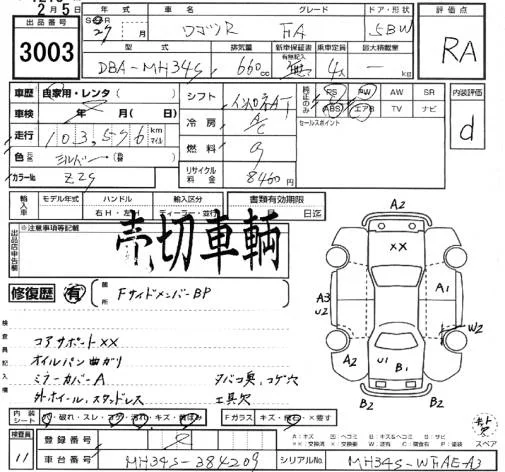 2月5日
出品番号
3003
年式 車名 グレード ドア・形状
S H 27年 月 ワゴンR FA 5BW
型式 排気量 新車保証書 有無記入 乗車定員 最大積載量
DBA-MH34S 660cc 無 4人 — kg
評価点
RA
車歴 自家用・レンタ( )
車検 年 月( 日)
走行 103,576 km マイル
色 シルバー
カラーNo Z2S
シフト インパネAT
冷房 A/C
燃料 G
リサイクル料金 8460円
PS PW AW SR
ABS エアB TV ナビ
セールスポイント
内装評価
d
輸入車 モデル年式 ハンドル 輸入区分 書類有効期限
年 右H・左H ディーラー・並行 日迄
※注意事項等記載
出品店申告欄
売切車輌
修復歴 有 箇所 Fサイドメンバー BP
検査員記入欄
コアサポートXX
オイルパン曲ガリ
ミラーカバーA
外ホイール、スタッドレス
タバコ臭、コゲ穴
工具欠
A2
XX
A3
U2
A1
W2
A2
U1
B1
A2
B2
B2
内装シート ・破れ・スレ・コゲ・汚れ・キズ・
Fガラス キズ・飛石・×要す
スペア
検査員
11
登録番号
車台番号 MH34S-384209
シリアルNo. MH34S-WFAE-A3